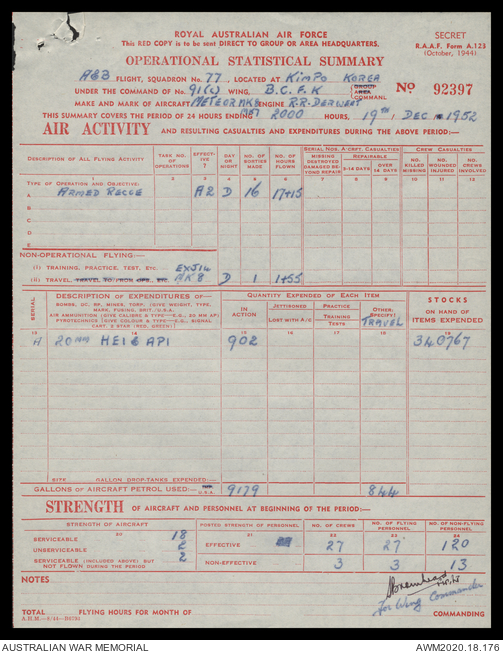 ROYAL AUSTRALIAN AIR FORCE
This RED COPY is to be sent DIRECT TO GROUP OR AREA HEADQUARTERS.
SECRET
R.A.A.F. Form A.125
(October, 1944)
OPERATIONAL STATISTICAL SUMMARY
A&B FLIGHT, SQUADRON No. 77, LOCATED AT KIMPO KOREA
UNDER THE COMMAND OF No. 91(c) WING, B.C.F.K GROUP AREA COMMAND. No 92397
MAKE AND MARK OF AIRCRAFT METEOR MK8 ENGINE R.R. DERWENT
THIS SUMMARY COVERS THE PERIOD OF 24 HOURS ENDING AT 2000 HOURS, 19TH / DEC 1952
AIR ACTIVITY AND RESULTING CASUALTIES AND EXPENDITURES DURING THE ABOVE PERIOD:—
DESCRIPTION OF ALL FLYING ACTIVITY
TASK NO. OF OPERATIONS
EFFECTIVE ?
DAY OR NIGHT
NO. OF SORTIES MADE
NO. OF HOURS FLOWN
SERIAL NOS. A'CRFT. CASUALTIES
MISSING DESTROYED DAMAGED BEYOND REPAIR
REPAIRABLE
2-14 DAYS
OVER 14 DAYS
CREW CASUALTIES
NO. KILLED MISSING
NO. WOUNDED INJURED
NO. CREWS INVOLVED
1 2 3 4 5 6 7 8 9 10 11 12
TYPE OF OPERATION AND OBJECTIVE:
A ARMED RECCE A2 D 16 17+15
B
C
D
E
NON-OPERATIONAL FLYING:—
(I) TRAINING, PRACTICE, TEST, ETC. EXJ14
(II) TRAVEL, TRAVEL TO FROM OPS., ETC. AK8 D 1 1+55
SERIAL
DESCRIPTION OF EXPENDITURES OF—
BOMBS, DC, RP, MINES, TORP. (GIVE WEIGHT, TYPE, MARK, FUSING, BRIT./U.S.A.
AIR AMMUNITION (GIVE CALIBRE & TYPE—E.G., 20 MM AP)
PYROTECHNICS (GIVE COLOUR & TYPE—E.G., SIGNAL CART. 2 STAR (RED. GREEN))
QUANTITY EXPENDED OF EACH ITEM
IN ACTION
JETTISONED
LOST WITH A/C
PRACTICE
TRAINING
TESTS
OTHER: SPECIFY: TRAVEL
STOCKS
ON HAND OF ITEMS EXPENDED
13 14 15 16 17 18 19
A 20MM HEI & API 902 340767
SIZE GALLON DROP-TANKS EXPENDED:—
GALLONS OF AIRCRAFT PETROL USED:— U.S.A. 9179 844
STRENGTH OF AIRCRAFT AND PERSONNEL AT BEGINNING OF THE PERIOD:—
STRENGTH OF AIRCRAFT
20
POSTED STRENGTH OF PERSONNEL
21
NO. OF CREWS
22
NO. OF FLYING PERSONNEL
23
NO. OF NON-FLYING PERSONNEL
24
SERVICEABLE 18
UNSERVICEABLE 2
EFFECTIVE 27 27 120
SERVICEABLE (INCLUDED ABOVE) BUT NOT FLOWN DURING THE PERIOD 2
NON-EFFECTIVE 3 3 13
NOTES
for Wing Commander
COMMANDING
TOTAL FLYING HOURS FOR MONTH OF
AUSTRALIAN WAR MEMORIAL
AWM2020.18.176